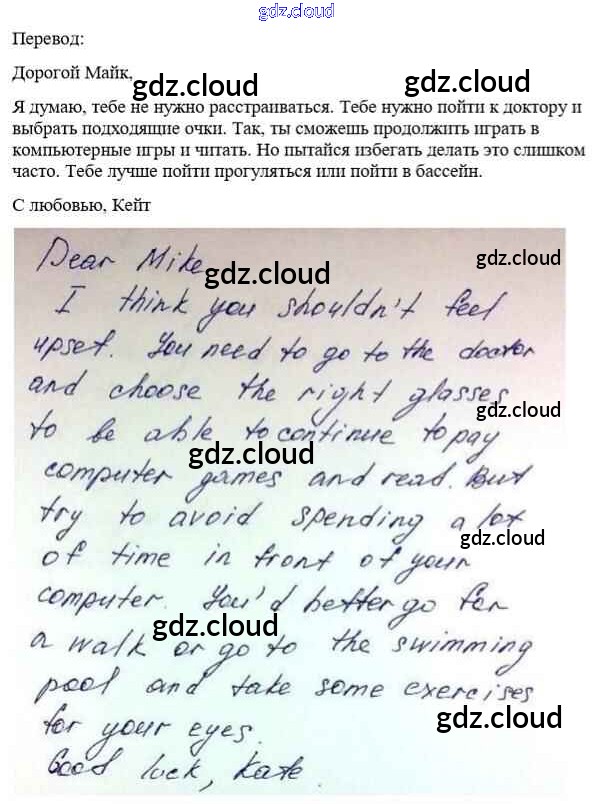 gdz.cloud
Перевод:
Дорогой Майк,
gdz.cloud
Я думаю, тебе не нужно расстраиваться. Тебе нужно пойти к доктору и
выбрать подходящие очки. Так, ты сможешь продолжить играть в
компьютерные игры и читать. Но пытайся избегать делать это слишком
часто. Тебе лучше пойти прогуляться или пойти в бассейн.
С любовью, Кейт
Dear Mike,
gdz.cloud
gdz.cloud
I think you shouldn't feel
upset. You need to go to the doctor
and choose the right glasses
gdz.cloud
to be able to continue to pay
gdz.cloud
computer games and read. But
try to avoid spending a lot
gdz.cloud
of time in front of your
computer. You'd better go for
gdz.cloud
a walk or go to the swimming
pool and take some exercises
gdz.cloud
for your eyes.
Good luck, Kate.